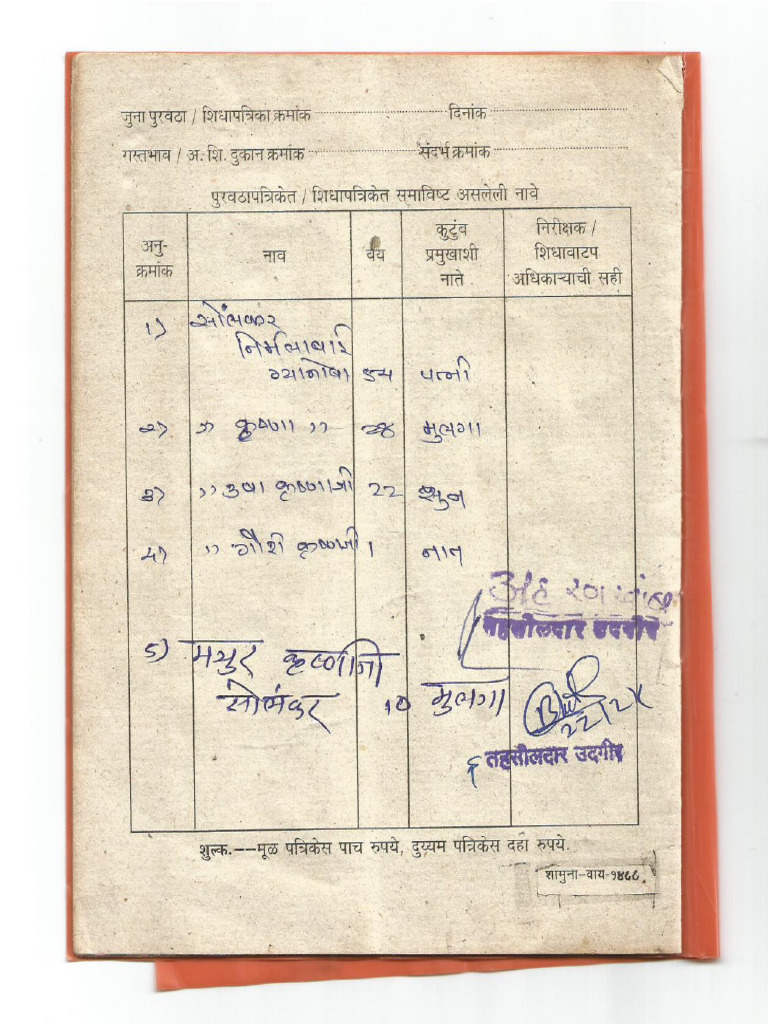 जुना पुरवठा / शिधापत्रिका क्रमांक दिनांक
रास्तभाव / अ. शि. दुकान क्रमांक संदर्भ क्रमांक
पुरवठापत्रिकेत / शिधापत्रिकेत समाविष्ट असलेली नावे
अनु-क्रमांक नाव वय कुटुंब प्रमुखाशी नाते निरीक्षक / शिधावाटप अधिकाऱ्याची सही
१) सोमंकर
निर्मलाबाई
ग्यानोबा ५४ पत्नी
२) " कृष्णा " २४ मुलगा
३) " उषा कृष्णाजी २२ सुन
४) " गौरी कृष्णाजी १ नात
तहसीलदार उदगीर
५) मयुर कृष्णाजी
सोमंकर १० मुलगा
तहसीलदार उदगीर
शुल्क.--मूळ पत्रिकेस पाच रुपये, दुय्यम पत्रिकेस दहा रुपये.
शामुना-वाय-१४८८